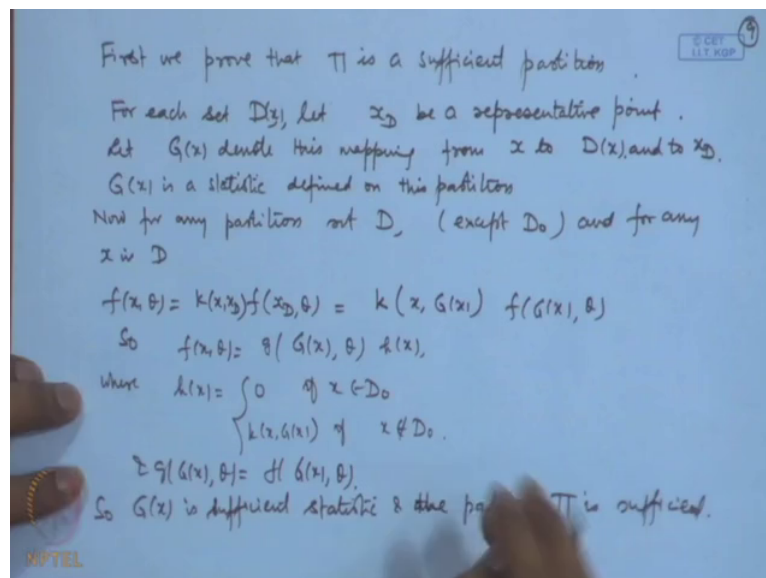 9
© CET
I.I.T. KGP
First we prove that Π is a sufficient partition.
For each set D(x), let x_D be a representative point.
Let G(x) denote this mapping from x to D(x), and to x_D.
G(x) is a statistic defined on this partition
Now for any partition set D, (except D₀) and for any
x in D
f(x,θ) = k(x,x_D) f(x_D,θ) = k(x, G(x)) f(G(x),θ)
So f(x,θ) = g(G(x),θ) h(x),
where h(x) = { 0 if x ∈ D₀
k(x,G(x)) if x ∉ D₀.
& g(G(x),θ) = f(G(x),θ).
So G(x) is sufficient statistic & the Π is sufficient.
NPTEL